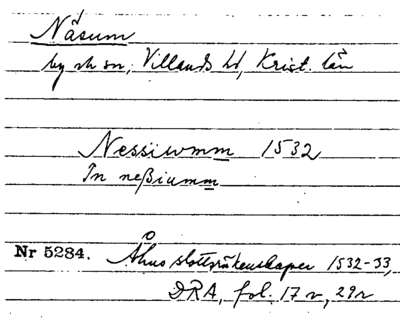 Näsum
by sk sn, Villands hd, Krist. län
Nessiwmm 1532
In neßiumm
Nr 5284. Åhus slottsräkenskaper 1532-33,
DRA, fol. 17 r, 29 r